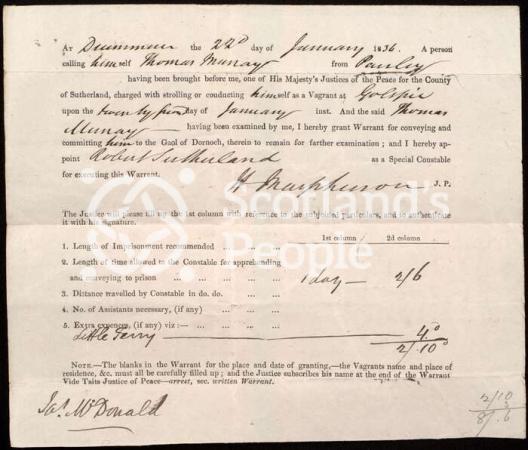 At Drummuie the 22d day of January 1836. A person
calling himself Thomas Murray from Paisley
having been brought before me, one of His Majesty's Justices of the Peace for the County
of Sutherland, charged with strolling or conducting himself as a Vagrant at Golspie
upon the twenty first day of January inst. And the said Thomas
Murray — having been examined by me, I hereby grant Warrant for conveying and
committing him to the Gaol of Dornoch, therein to remain for farther examination; and I hereby ap-
point Robert Sutherland as a Special Constable
for executing this Warrant.
J. P.
The Justice will please fill up the 1st column with reference to the subjoined particulars, and to authenticate
it with his signature.
1st column 2d column
1. Length of Imprisonment recommended ... ... ...
2. Length of time allowed to the Constable for apprehending
and conveying to prison ... ... ... ... ... 1 day — 2/6
3. Distance travelled by Constable in do. do. ... ...
4. No. of Assistants necessary, (if any) ... ... ...
5. Extra expences, (if any) viz:— ... ... ... ...
Little Ferry — 4d
2/.10d
NOTE.—The blanks in the Warrant for the place and date of granting,—the Vagrants name and place of
residence, &c. must all be carefully filled up; and the Justice subscribes his name at the end of the Warrant
Vide Taits Justice of Peace—arrest, sec. written Warrant.
Jas. McDonald
2/10
8/.6
Scotland's
People